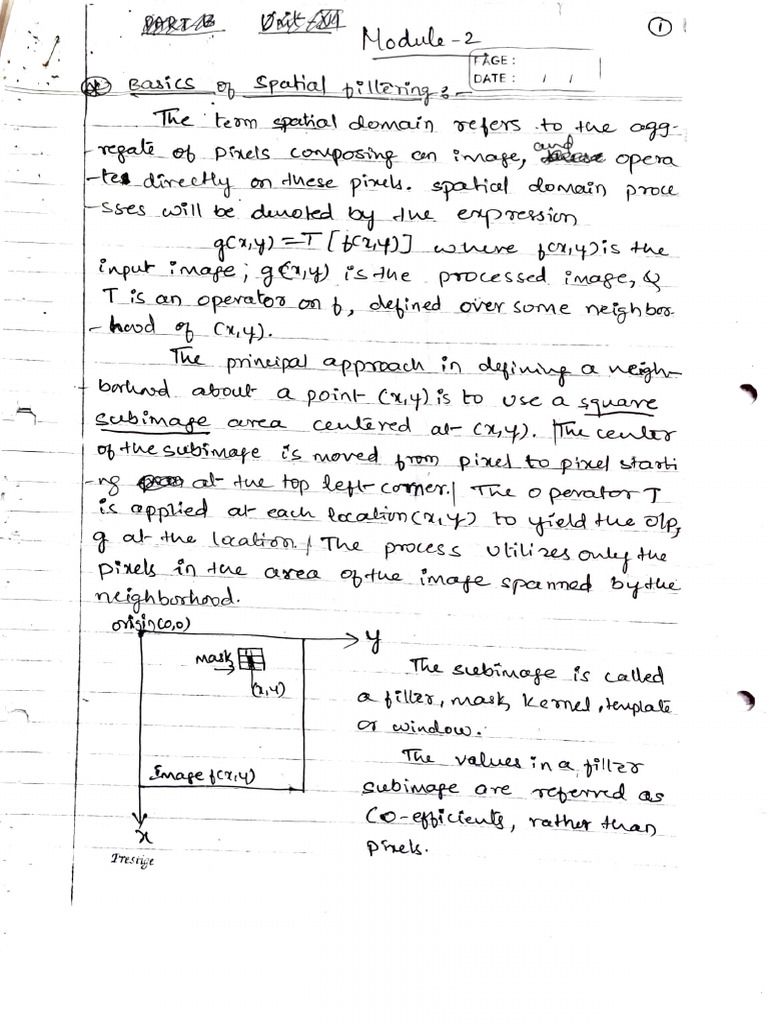 PART B Unit-VI
①
Module-2
PAGE:
DATE: / /
Basics of Spatial filtering :-
The term spatial domain refers to the agg-
-regate of pixels composing an image, and opera
-tes directly on these pixels. spatial domain proce
-sses will be denoted by the expression
g(x,y) = T [f(x,y)] where f(x,y) is the
input image; g(x,y) is the processed image, &
T is an operator on f, defined over some neighbor-
-hood of (x,y).
The principal approach in defining a neigh-
borhood about a point (x,y) is to use a square
subimage area centered at (x,y). The center
of the subimage is moved from pixel to pixel starti
-ng at the top left corner. The operator T
is applied at each location (x,y) to yield the o/p,
g at the location. The process utilizes only the
pixels in the area of the image spanned by the
neighborhood.
origin(0,0)
y
mask
(x,y)
Image f(x,y)
x
The subimage is called
a filter, mask, kernel, template
or window.
The values in a filter
subimage are referred as
Co-efficients, rather than
pixels.
Prestige